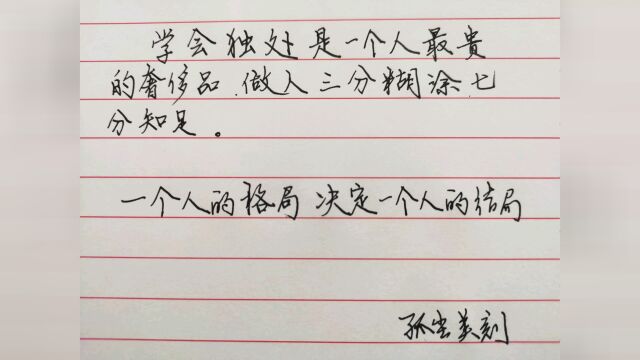 学会独处是一个人最贵
的奢侈品.做人三分糊涂七
分知足。
一个人的格局 决定一个人的结局